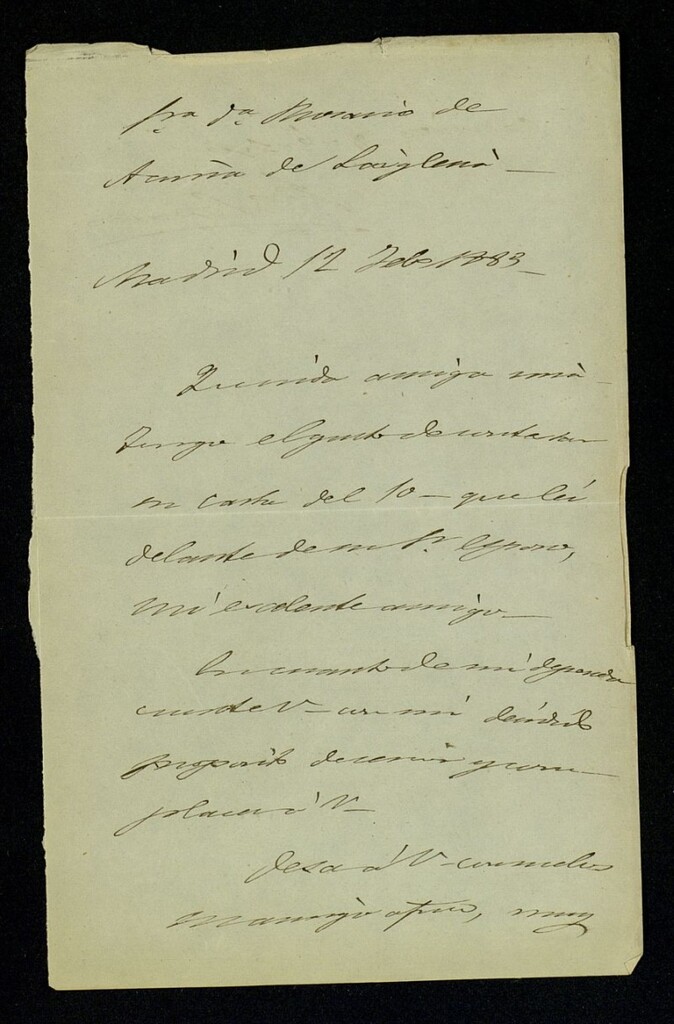 Sra Da Rosario de
Acuña de Laiglesia
Madrid 12 Feb 1883
Querida amiga mia
Tengo el gusto de contestar
su carta del 10 – que leí
delante de su Sr. esposo,
mi excelente amigo –
En cuanto de mi dependa
cuente V – con mi decidido
proposito de servir y com
placer á V –
Besa á V – con
muy